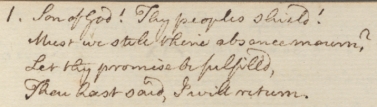 1. Son of God! Thy peoples shield!
Must we still thine absence mourn?
Let thy promise be fulfill'd,
Thou hast said, I will return.